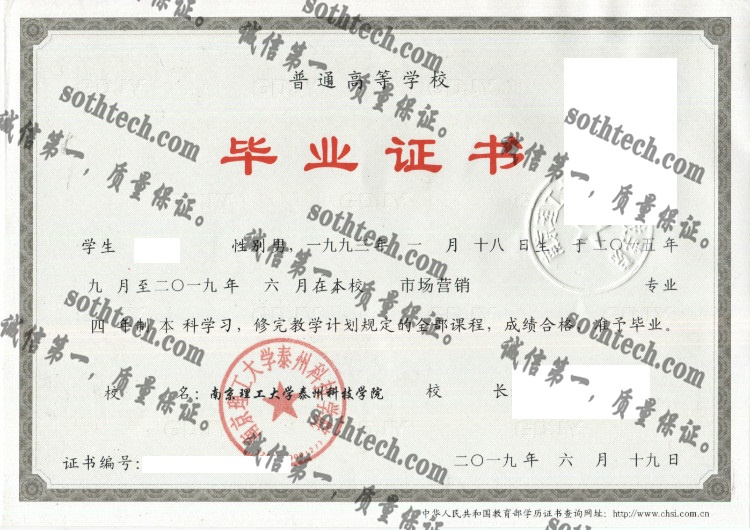 普通高等学校
毕业证书
学生 性别男，一九九三年 一 月 十八 日生，于二〇一五年
九 月至二〇一九年 六 月在本校 市场营销 专业
四 年制 本 科学习，修完教学计划规定的全部课程，成绩合格，准予毕业。
校 名：南京理工大学泰州科技学院 校 长
证书编号： 二〇一九年 六 月 十九日
中华人民共和国教育部学历证书查询网址：http://www.chsi.com.cn
南京理工大学泰州科技学院
sothtech.com
诚信第一，质量保证。
sothtech.com
诚信第一，质量保证。
sothtech.com
诚信第一，质量保证。
sothtech.com
诚信第一，质量保证。
sothtech.com
诚信第一，质量保证。
sothtech.com
诚信第一，质量保证。
sothtech.com
诚信第一，质量保证。
sothtech.com